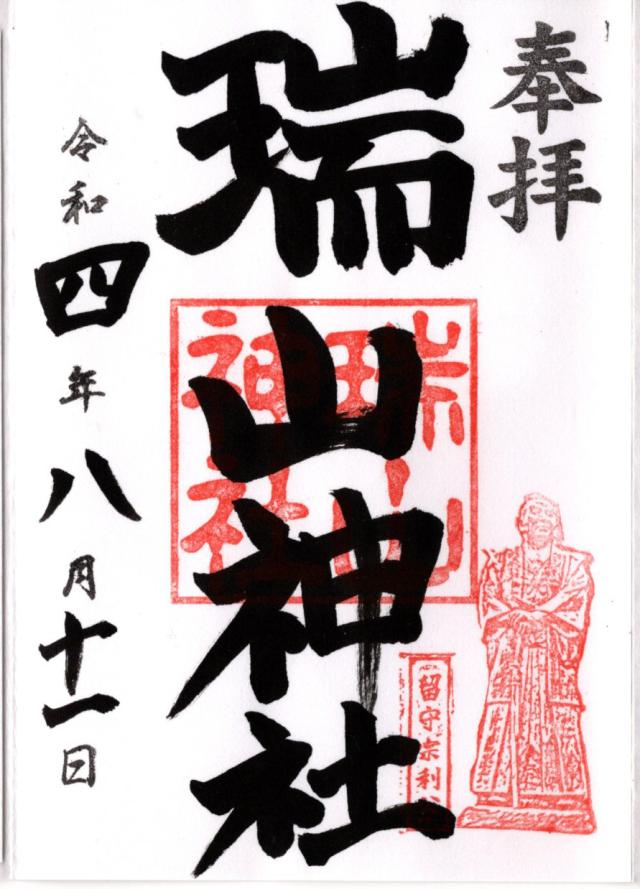 奉拝
瑞山神社
瑞山
神社
留守宗利公
令和四年八月十一日